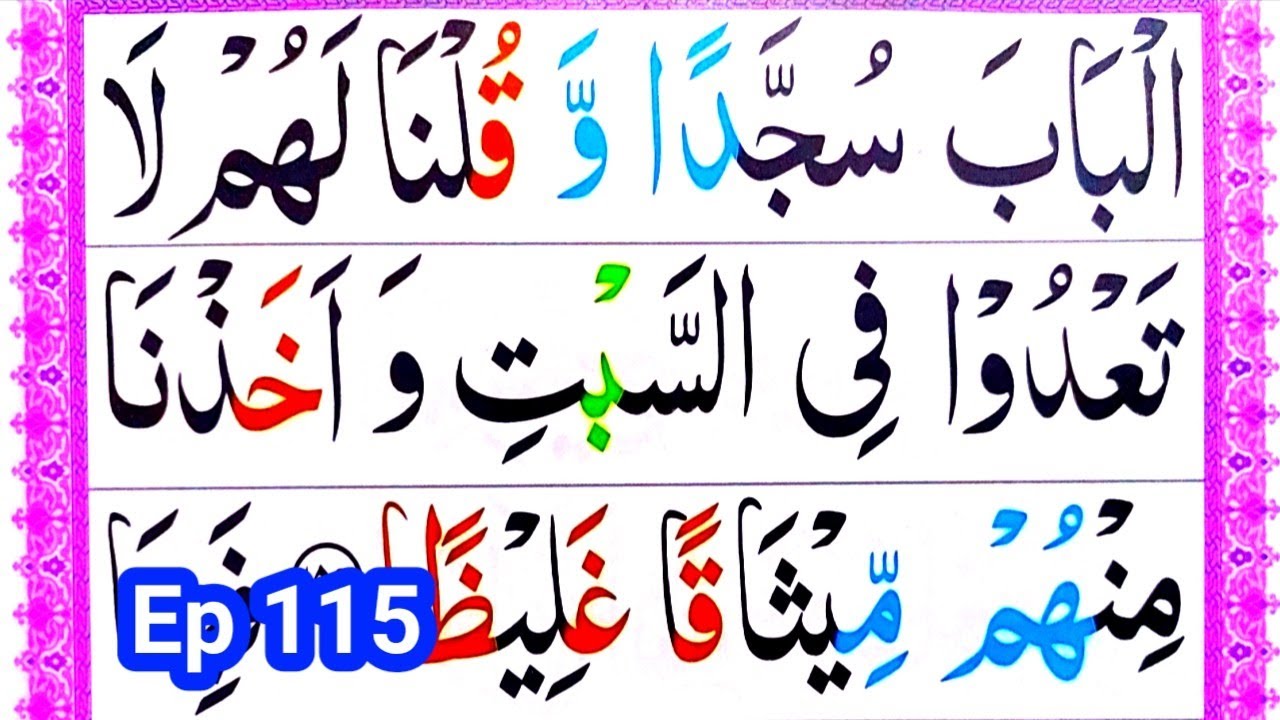 الْبَابَ سُجَّدًا وَّ قُلْنَا لَهُمْ لَا
تَعْدُوْا فِی السَّبْتِ وَ اَخَذْنَا
مِنْهُمْ مِّیْثَاقًا غَلِیْظًا
Ep 115